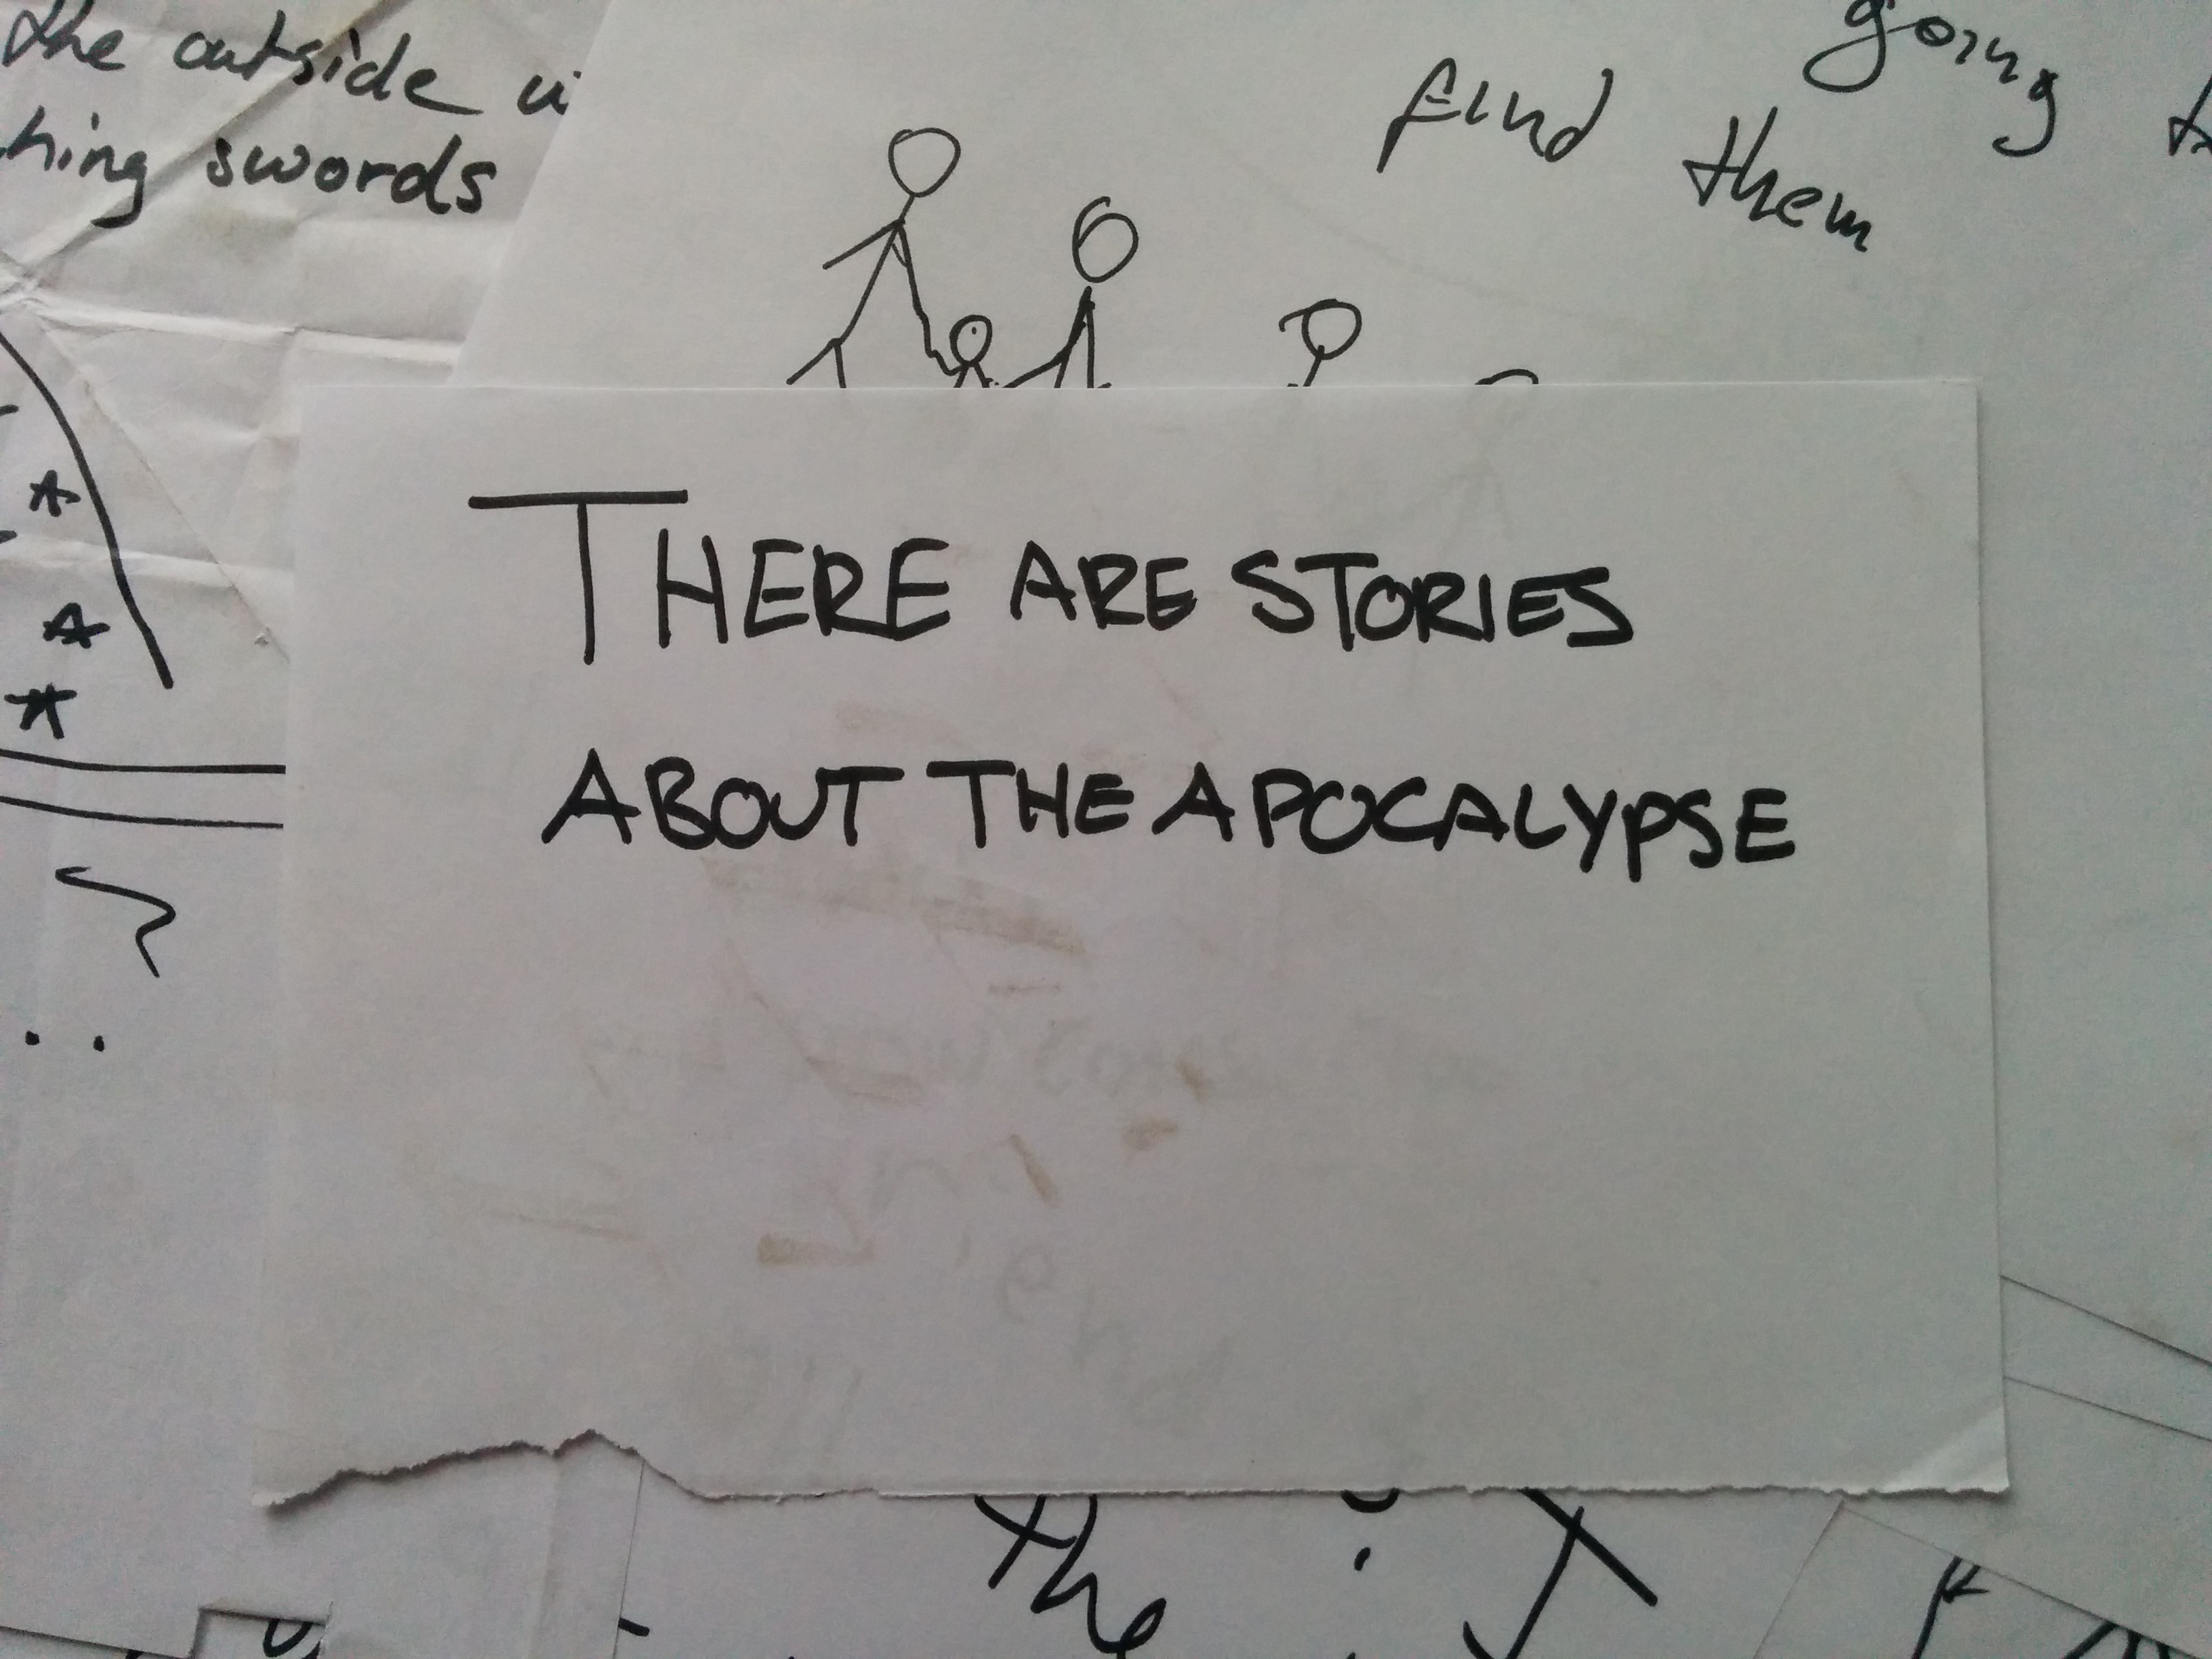 the outside
swords
going
find them
THERE ARE STORIES
ABOUT THE APOCALYPSE
?
..
the